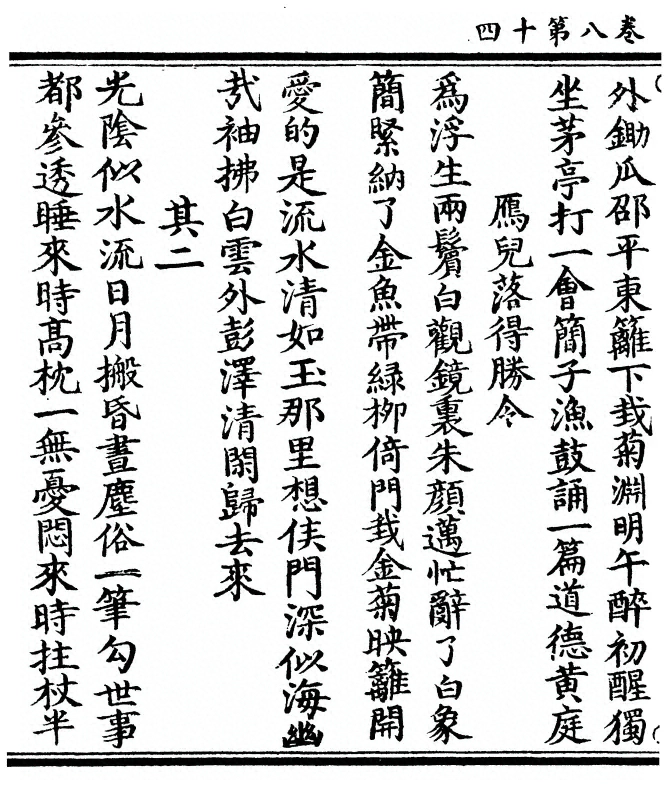 卷八第十四
外鋤瓜邵平東籬下栽菊淵明午醉初醒獨
坐茅亭打一會簡子漁鼓誦一篇道德黃庭
鴈兒落得勝令
爲浮生兩鬢白觀鏡裏朱顏邁忙辭了白象
簡緊納了金魚帶緑栁倚門栽金菊映籬開
愛的是流水清如玉那里想侯門深似海幽
哉袖拂白雲外彭澤清閑歸去來
其二
光陰似水流日月搬昏晝塵俗一筆勾世事
都參透睡來時髙枕一無憂悶來時拄杖半